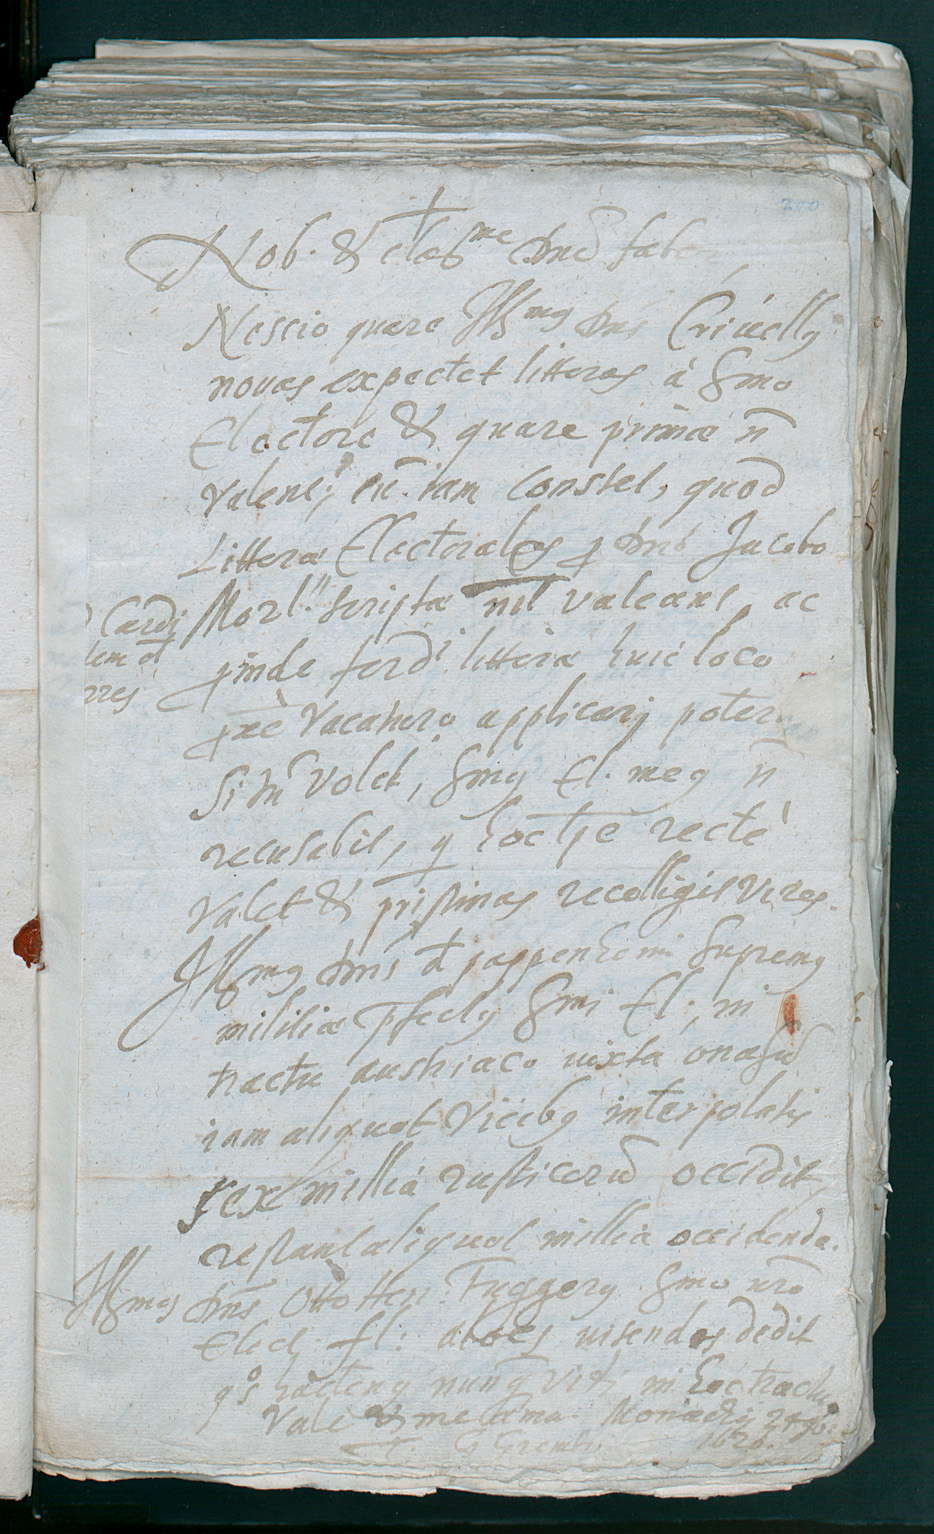 200
Nob. & claris^me Dnē faber
Nescio quare Ill^mus Dns Crivelly
novas expectet litteras á Smo
Electore & quare primæ n̄
valent, cū iam constet, quod
Litteræ Electorales p̱ Dnō Jacobo
Morl" scriptæ nil valeant, ac
p̱inde ferdi litteræ huic loco
p̱ vacaturo applicarj poter
Si tn̄ volet, Smus El. meus n̄
recusabit, q hoc tp̄e rectè
valet & pristinas recolligit vires.
Illmus Dns d pappenhemi Supremus
militiæ p̱fectus Smi El., in
tractu austriaco iuxta onasū
iam aliquot vicibus interpolatis
sex millia rusticorū occidit,
restant aliquot millia occidenda.
Illmus Dns Otto Hen: Fuggerus Smo nrō
Elect: fl: aloes visendos dedit
q°s hactenus nunq̄ vidi in hoc tractu
Vale & me ama Monachij 24 9b.
1626.
Cardi
rres